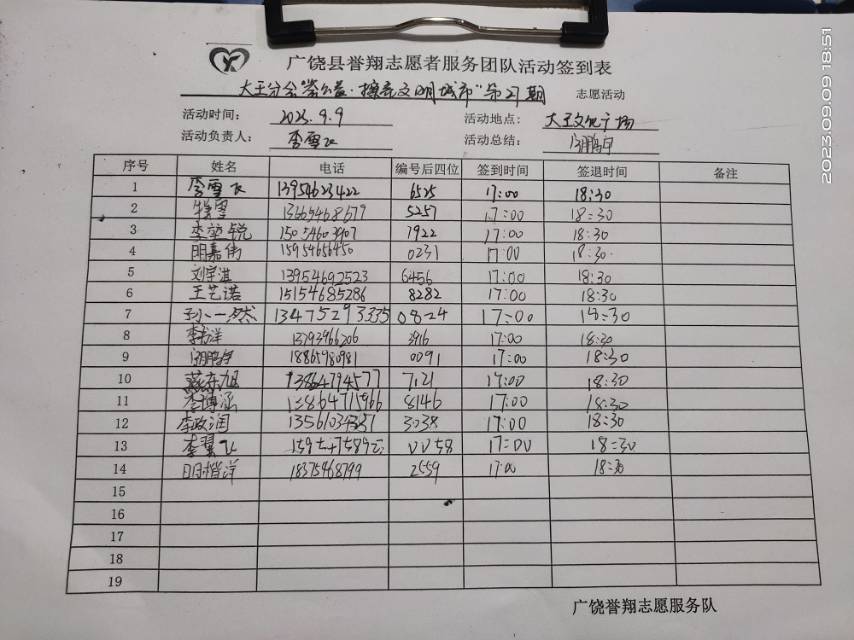 广饶县誉翔志愿者服务团队活动签到表
大王分会 公益·擦亮文明城市"第27期 志愿活动
活动时间： 2023.9.9 活动地点： 大王文化广场
活动负责人： 李雪飞 活动总结：
序号 姓名 电话 编号后四位 签到时间 签退时间 备注
1 李雪飞 13954623422 6525 17:00 18:30
2 13665468679 5257 17:00 18:30
3 李堃锐 15054603907 7922 17:00 18:30
4 明嘉伟 15954656450 0231 17:00 18:30
5 刘宇淇 13954692523 6456 17:00 18:30
6 王艺诺 15154685286 8282 17:00 18:30
7 孙一然 13475293335 0824 17:00 18:30
8 13793966206 3916 17:00 18:30
9 18865980981 0091 17:00 18:30
10 13864794577 7121 17:00 18:30
11 李博涵 13864711966 8146 17:00 18:30
12 李政润 13561034351 3038 17:00 18:30
13 李翼飞 0058 17:00 18:30
14 明楷洋 18375468799 2559 17:00 18:30
15
16
17
18
19
广饶誉翔志愿服务队
2023.09.09 18:51